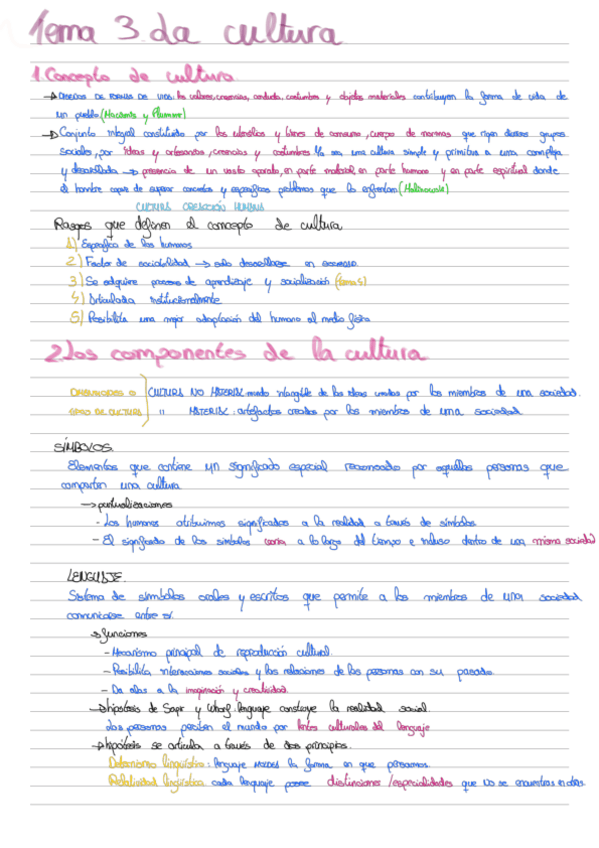 Tema 3. La cultura
1. Concepto de cultura
→ DISEÑOS DE FORMA DE VIDA: los valores, creencias, conducta, costumbre y objetos materiales contribuyen la forma de vida de
un pueblo (Macionis y Plummer)
→ Conjunto integral constituido por los utensilios y bienes de consumo, cuerpo de normas que rigen diversos grupos
sociales, por ideas y artesanías, creencias y costumbres. Ya sea una cultura simple y primitiva a una compleja
y desarrollada → presencia de un vasto aparato, en parte material, en parte humano y en parte espiritual donde
el hombre capaz de superar concretos y específicos problemas que lo enfrentan (Malinowski)
CULTURA CREACIÓN HUMANA
Rasgos que definen el concepto de cultura
1) Específica de los humanos
2) Factor de sociabilidad → solo desarrollarse en sociedad
3) Se adquiere proceso de aprendizaje y socialización (tema 4)
4) Articulada institucionalmente
5) Posibilita una mejor adaptación del humano al medio físico
2. Los componentes de la cultura
CULTURA NO MATERIAL: mundo intangible de las ideas creadas por los miembros de una sociedad.
TIPO DE CULTURA " MATERIAL: artefactos creados por los miembros de una sociedad
SÍMBOLOS
Elementos que contiene un significado especial reconocido por aquellas personas que
comparten una cultura
→ puntualizaciones
- Los humanos atribuimos significados a la realidad a través de símbolos
- El significado de los símbolos varía a lo largo del tiempo e incluso dentro de una misma sociedad
LENGUAJE
Sistema de símbolos orales y escritos que permite a los miembros de una sociedad
comunicarse entre sí.
→ funciones
- Mecanismo principal de reproducción cultural.
- Posibilita interacciones sociales y las relaciones de las personas con su pasado.
- Da alas a la imaginación y creatividad.
→ hipótesis de Sapir y Whorf: lenguaje construye la realidad social.
Las personas perciben el mundo por lentes culturales del lenguaje
→ hipótesis se articula a través de dos principios.
Determinismo lingüístico: lenguaje moldea la forma en que pensamos.
Relatividad lingüística cada lenguaje posee distinciones/especialidades que no se encuentran en otras.